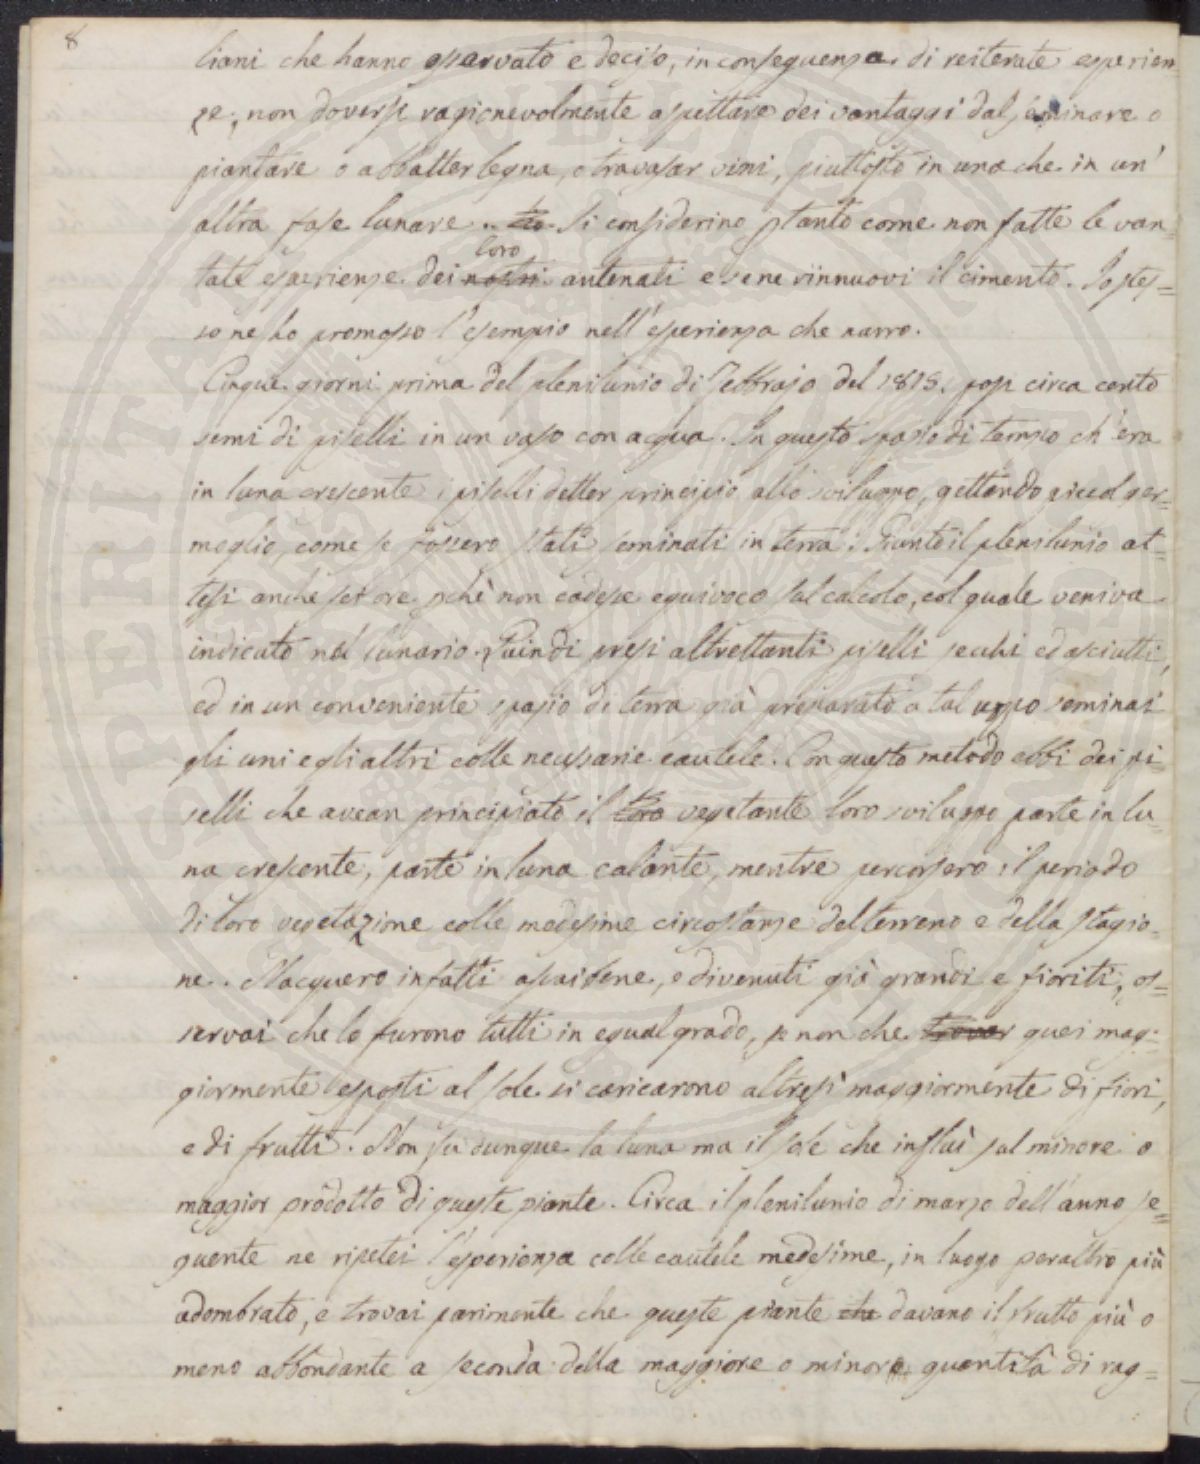 8
liani che hanno osservato e deciso, in conseguenza di reiterate esperien
ze, non doversi ragionevolmente aspettare dei vantaggi dal seminare o
piantare o abbatter legna, o travasar vini, piuttosto in una che in un'
altra fase lunare. Si considerino ptanto come non fatte le van=
loro
tate esperienze dei nostri antenati e se ne rinnuovi il cimento. Io stes=
so ne ho promosso l'esempio nell'esperienza che narro.
Cinque giorni prima del plenilunio di Febbrajo del 1815. posi circa cento
semi di piselli in un vaso con acqua. In questo spazio di tempo ch'era
in luna crescente i piselli detter principio allo sviluppo, gettando piccol ger=
moglio, come se fossero stati seminati in terra. Giunto il plenilunio at=
tesi anche sei ore pchè non cadesse equivoco sul calcolo, col quale veniva
indicato nel lunario. Quindi presi altrettanti piselli secchi ed asciutti,
ed in un conveniente spazio di terra già preparato a tal uopo seminai
gli uni e gli altri colle necessarie cautele. Con questo metodo ebbi dei pi=
selli che avean principiato il loro vegetante loro sviluppo parte in lu=
na crescente, parte in luna calante, mentre percorsero il periodo
di loro vegetazione colle medesime circostanze del terreno e della stagio=
ne. Nacquero infatti assai bene, e divenuti già grandi e fioriti, os=
servai che lo furono tutti in egual grado, se non che trovar quei mag=
giormente esposti al sole si caricarono altresì maggiormente di fiori,
e di frutti. Non fu dunque la luna ma il sole che influì sul minore o
maggior prodotto di queste piante. Circa il plenilunio di marzo dell'anno se=
guente ne ripetei l'esperienza colle cautele medesime, in luogo peraltro più
adombrato, e trovai parimente che queste piante che davano il frutto più o
meno abbondante a seconda della maggiore o minore quantità di rag=